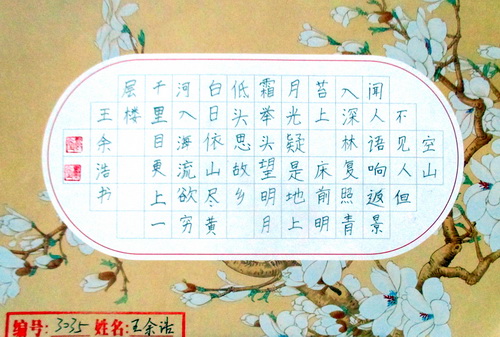 空山
不见人但
闻人语响返景
入深林复照青
苔上 床前明
月光疑是地上
霜举头望明月
低头思故乡
白日依山尽黄
河入海流欲穷
千里目更上一
层楼
王余浩书
编号: 3035 姓名: 王余浩